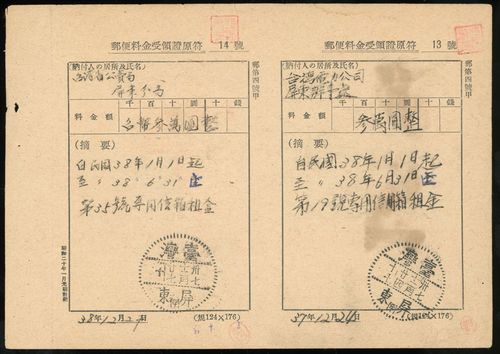 郵便料金受領證原符 14 號
(納付人の居所及氏名)
省公賣局
屏東分局
千 百 十 圓 十 錢
料金額 台幣參萬圓整
(摘要)
自民國38年1月1日起
至 〃 38〃 6〃 31〃 止
第35號專用信箱租金
臺灣
屏東
38年12月2
(規124×176)
郵第四號甲
郵便料金受領證原符 13 號
(納付人の居所及氏名)
台灣電力公司
屏東辦事處
千 百 十 圓 十 錢
料金額 參萬圓整
(摘要)
自民國38年1月1日起
至 〃 38年6月31日止
第19號專用信箱租金
臺灣
屏東
37年12月24日
(規124×176)
郵第四號甲